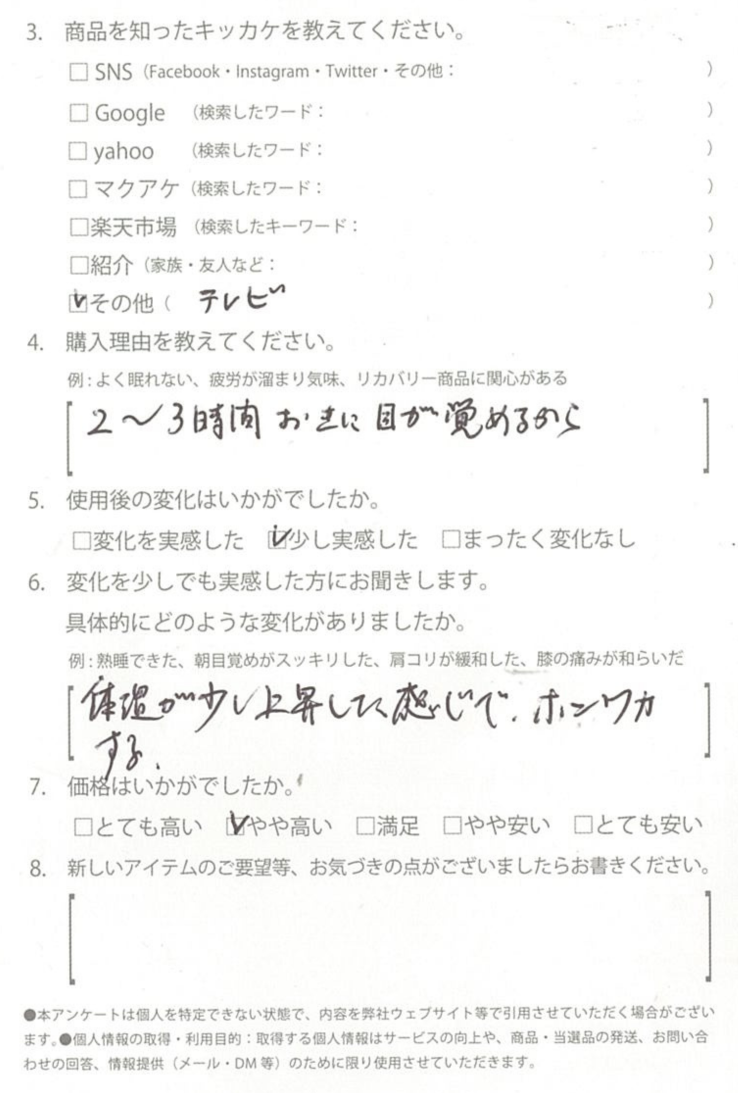 3. 商品を知ったキッカケを教えてください。
□ SNS（Facebook・Instagram・Twitter・その他： ）
□ Google （検索したワード： ）
□ yahoo （検索したワード： ）
□ マクアケ（検索したワード： ）
□楽天市場 （検索したキーワード： ）
□紹介（家族・友人など： ）
☑その他（ テレビ ）
4. 購入理由を教えてください。
例：よく眠れない、疲労が溜まり気味、リカバリー商品に関心がある
2〜3時間おきに目が覚めるから
5. 使用後の変化はいかがでしたか。
□変化を実感した ☑少し実感した □まったく変化なし
6. 変化を少しでも実感した方にお聞きします。
具体的にどのような変化がありましたか。
例：熟睡できた、朝目覚めがスッキリした、肩コリが緩和した、膝の痛みが和らいだ
体温が少し上昇した感じで、ホンワカ
する.
7. 価格はいかがでしたか。
□とても高い ☑やや高い □満足 □やや安い □とても安い
8. 新しいアイテムのご要望等、お気づきの点がございましたらお書きください。
●本アンケートは個人を特定できない状態で、内容を弊社ウェブサイト等で引用させていただく場合がござい
ます。●個人情報の取得・利用目的：取得する個人情報はサービスの向上や、商品・当選品の発送、お問い合
わせの回答、情報提供（メール・DM 等）のために限り使用させていただきます。